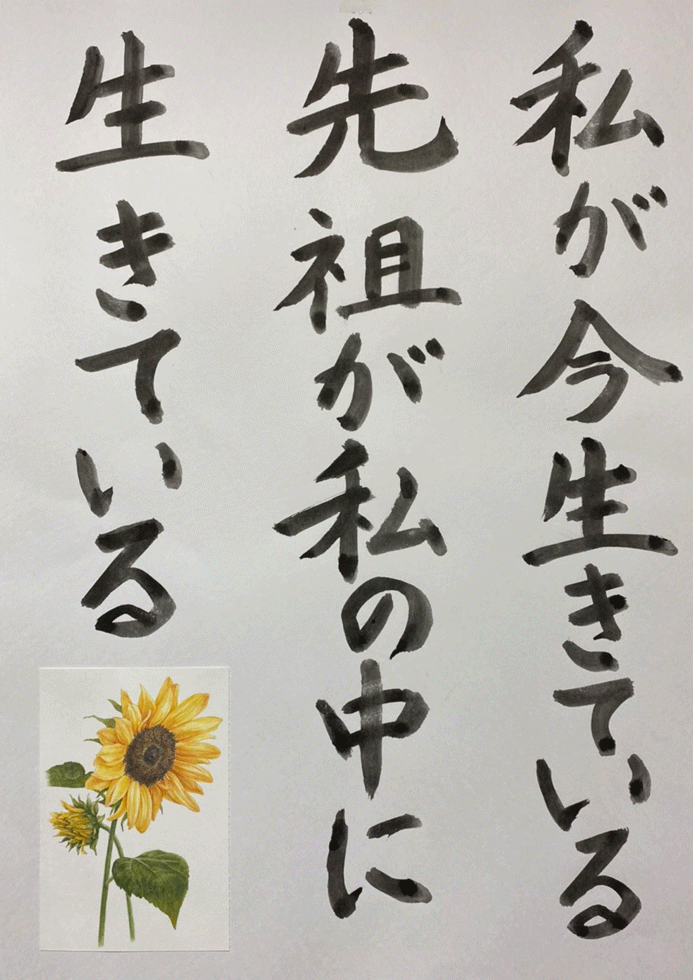 私が今生きている
先祖が私の中に
生きている